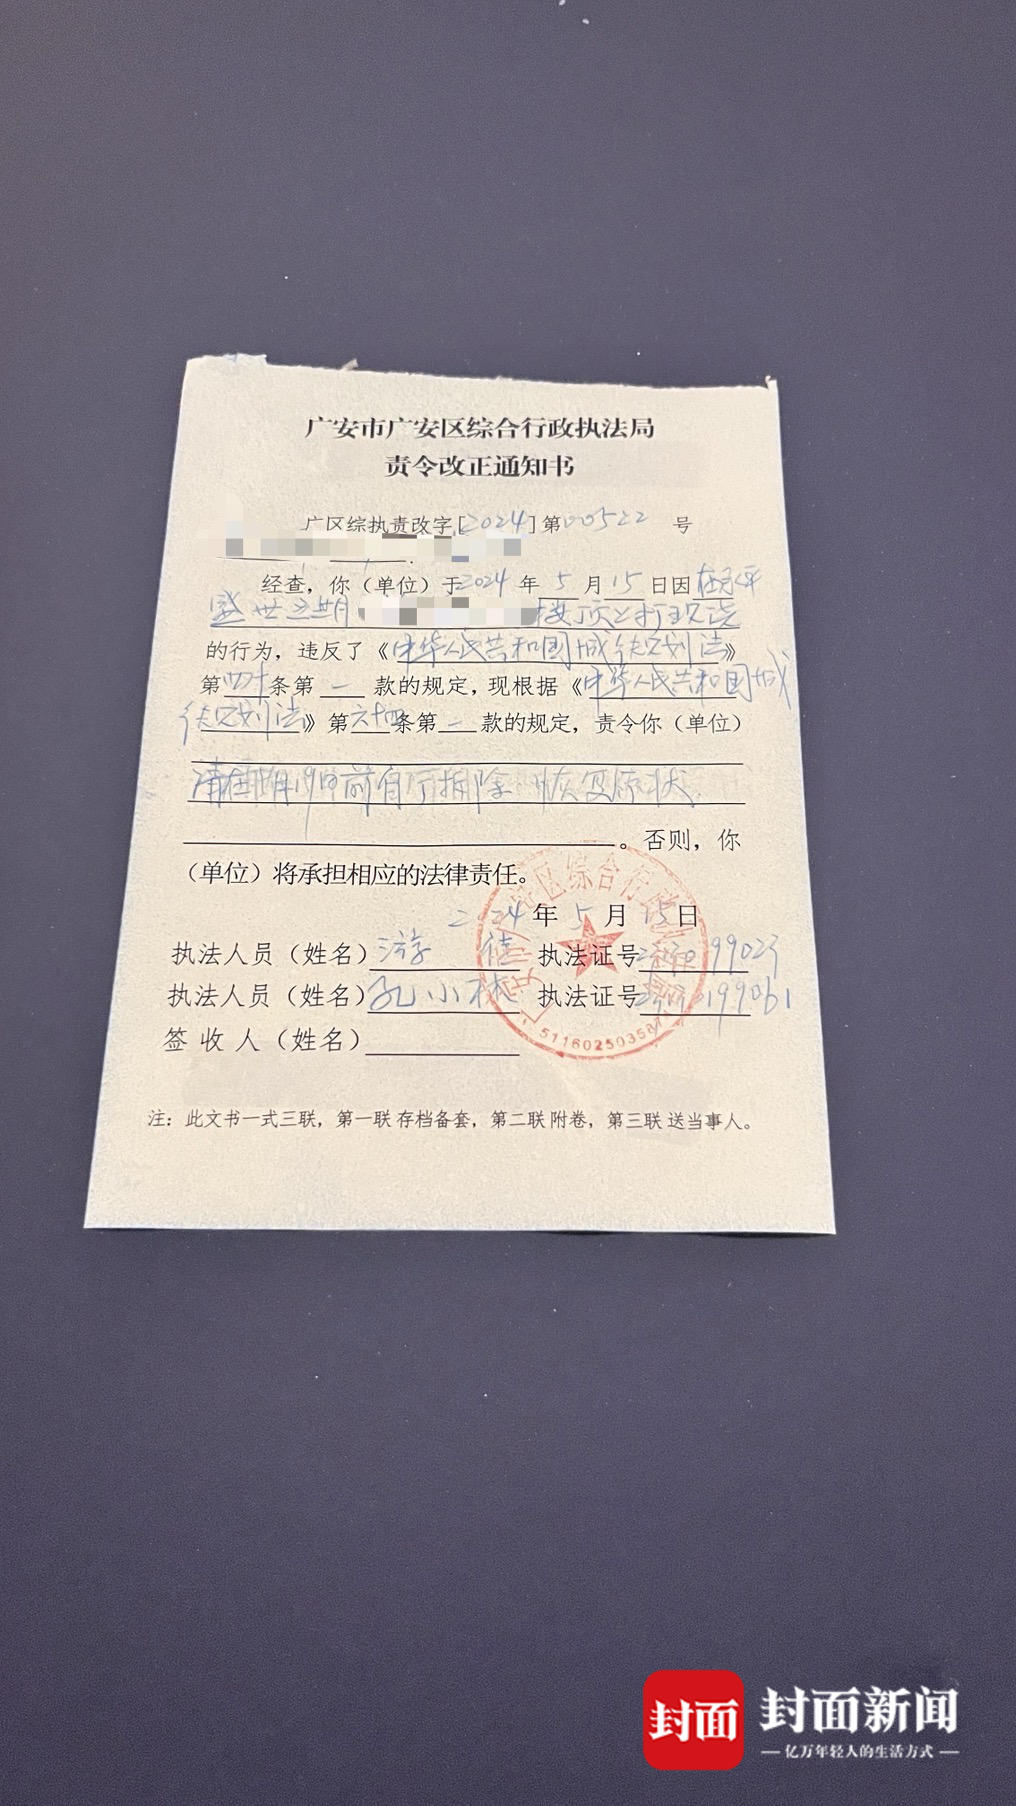 广安市广安区综合行政执法局
责令改正通知书
广区综执责改字[2024]第00522 号
经查，你（单位）于2024 年 5 月 15 日因在
盛世 楼顶之
的行为，违反了《中华人民共和国城乡规划法》
第四十条第一 款的规定，现根据《中华人民共和国城
乡规划法》第六十四条第一 款的规定，责令你（单位）
19日前自行拆除 恢复原状
。否则，你
（单位）将承担相应的法律责任。
2024 年 5 月 15日
执法人员（姓名）游 执法证号 99023
执法人员（姓名）孔小 执法证号 199061
签 收 人（姓名）
5116025035871
注：此文书一式三联，第一联 存档备套，第二联 附卷，第三联 送当事人。
封面
封面新闻
亿万年轻人的生活方式